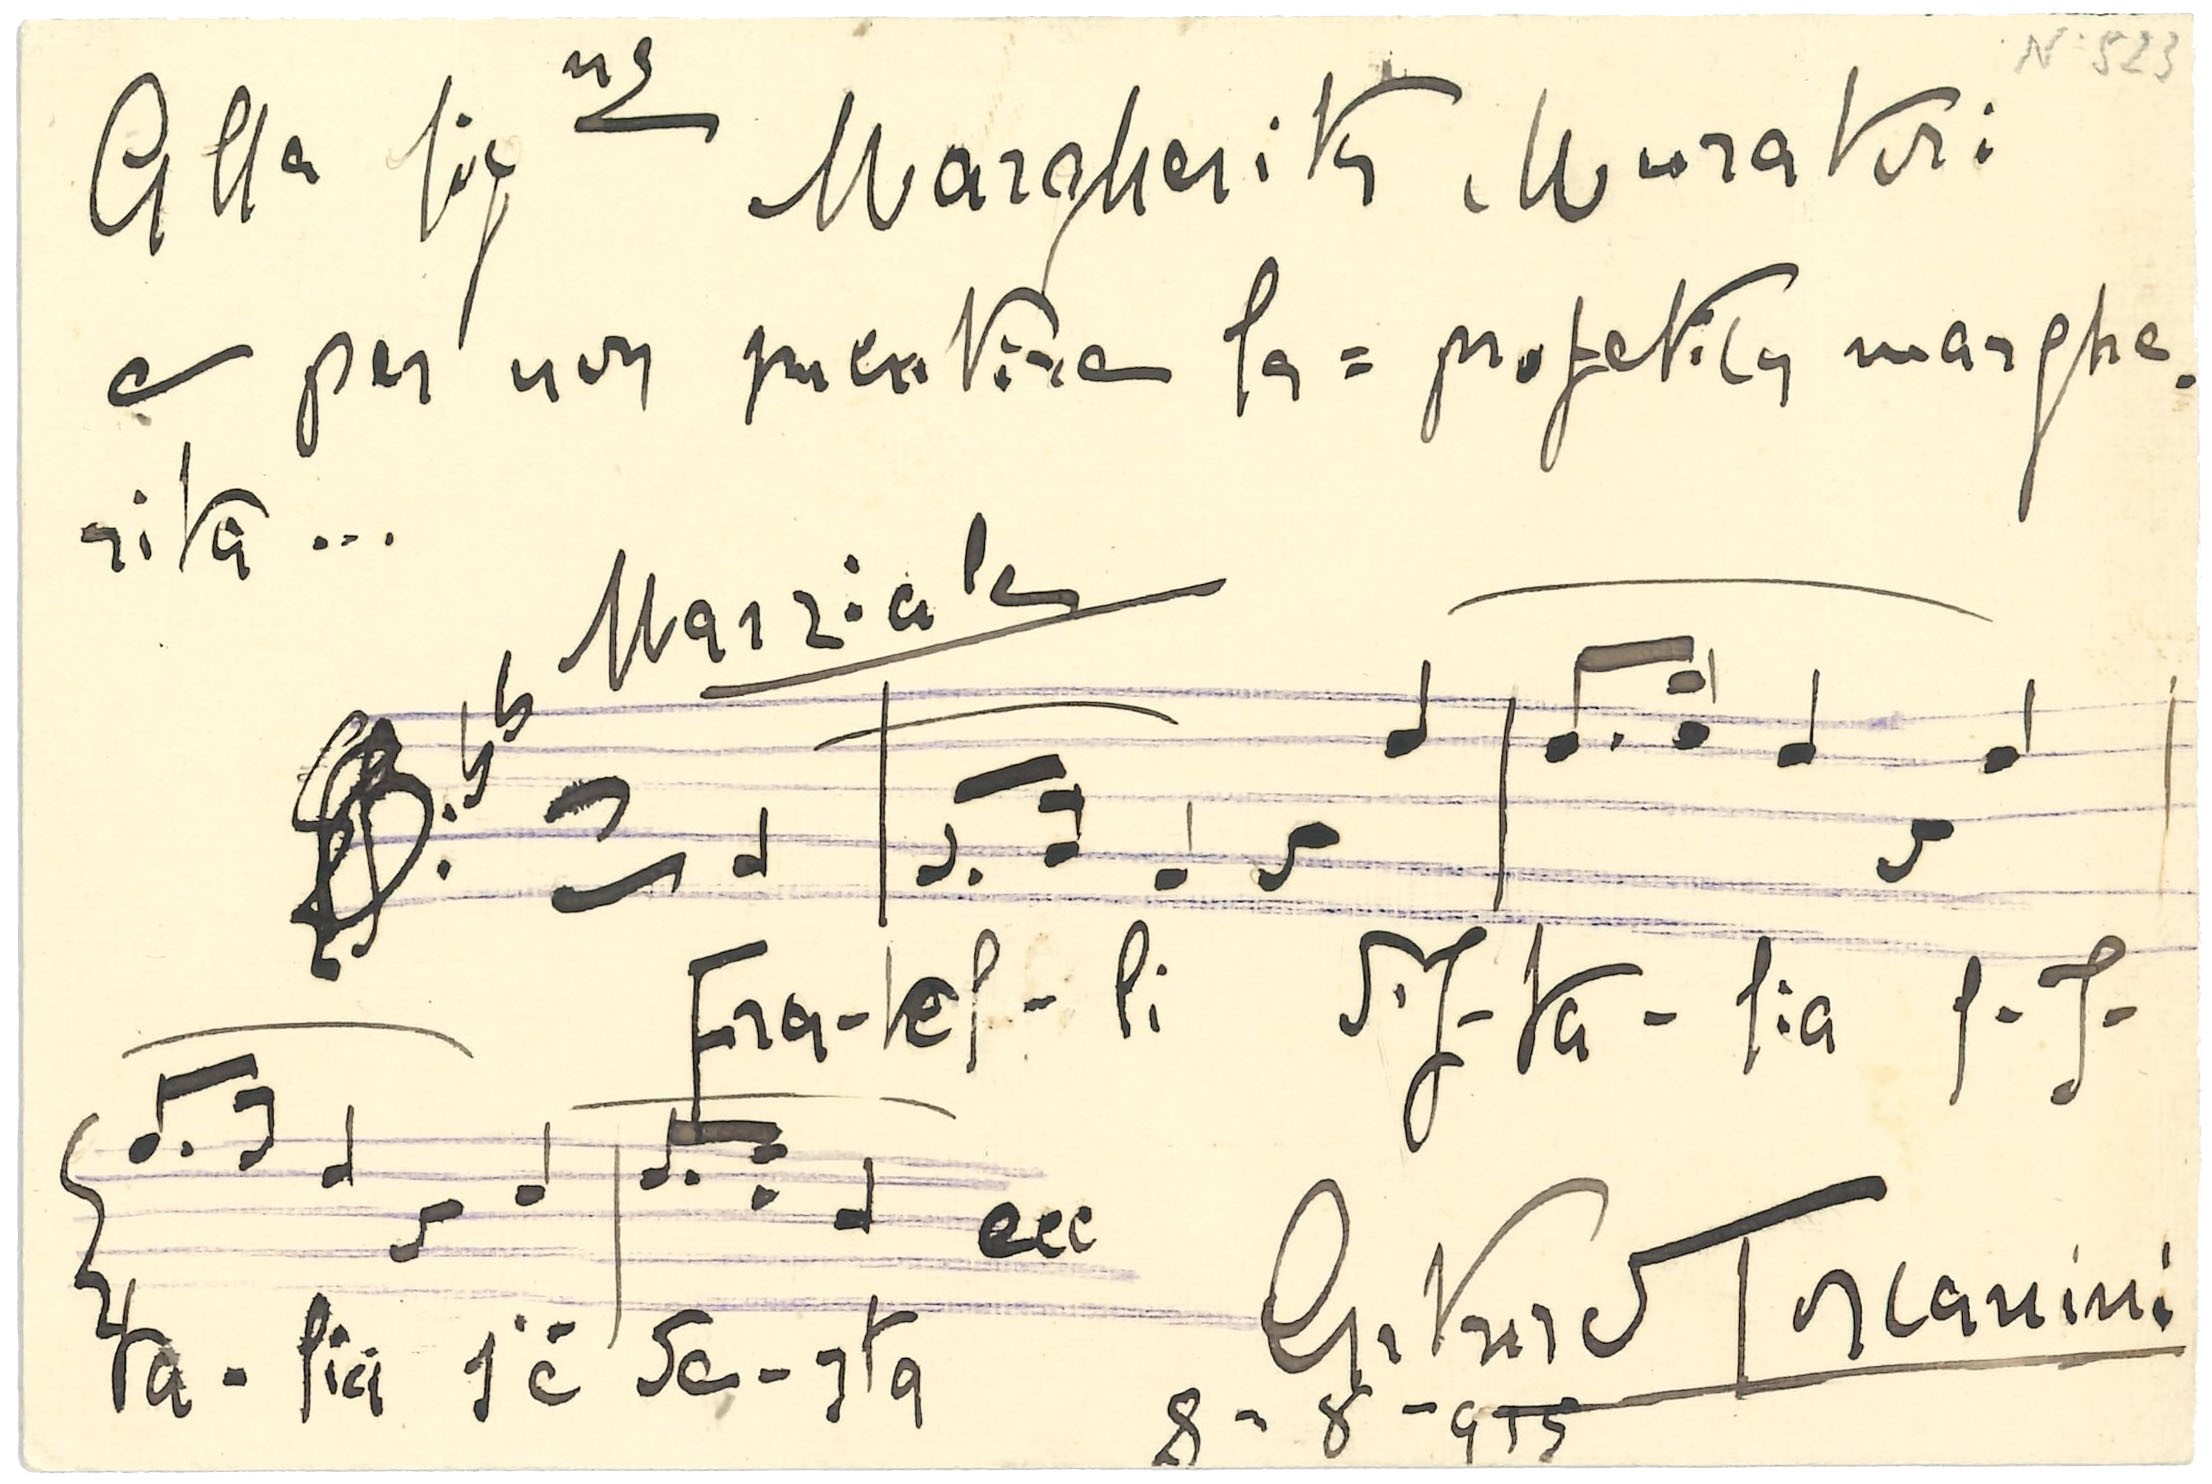 N. 523
Alla Sig.na Margherita Muratori
e per non smentire la = profetica marghe.
rita ...
Marziale
Fra-tel-li d'I-ta-lia l-I-
ta-lia s'è de-sta
ecc
Arturo Toscanini
8-8-915